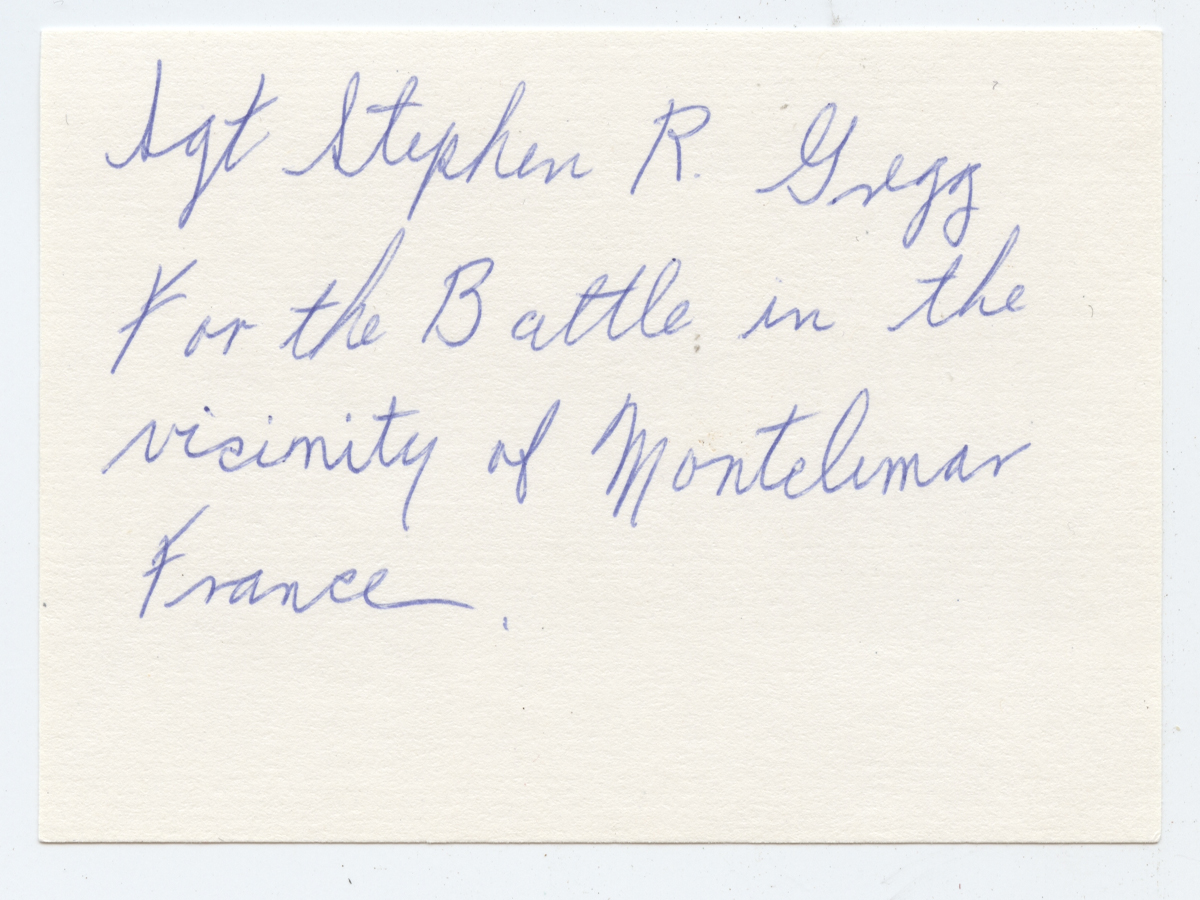 Sgt Stephen R. Gregg
For the Battle in the
vicinity of Montelimar
France.